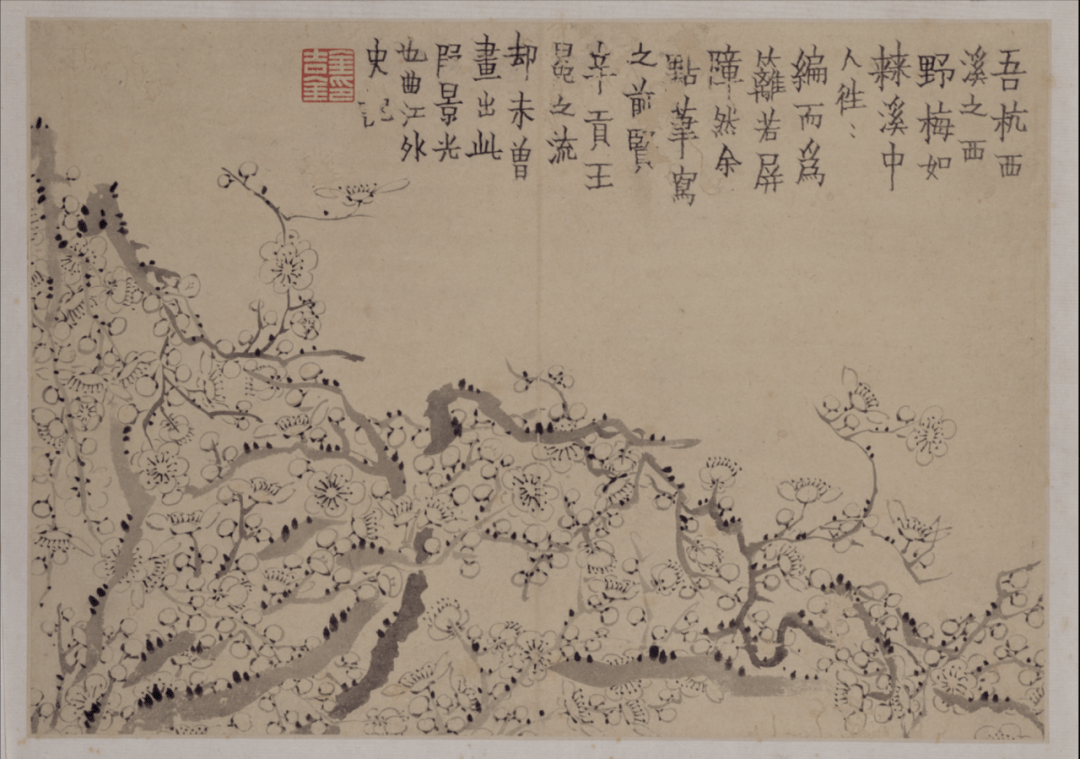 吾杭西
溪之西
野梅如
棘溪中
人徃〻
編而爲
籬若屏
障然余
點筆寫
之前賢
辛貢王
冕之流
却未曾
畫出此
段景光
也曲江外
史記
金吉金印